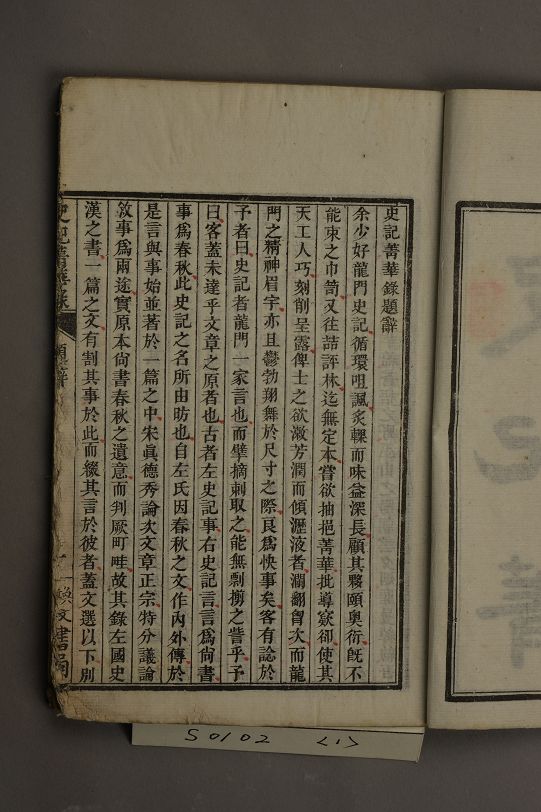 史記菁華錄題辭
余少好龍門史記循環咀諷炙輠而味益深長顧其夥頤奧衍既不
能束之巾笥又往詰評林迄無定本嘗欲抽挹菁華批導窾卻使其
天工人巧刻削呈露俾士之欲漱芳潤而傾瀝液者瀾翻胷次而龍
門之精神眉宇亦且鬱勃翔舞於尺寸之際良爲快事矣客有諗於
予者曰史記者龍門一家言也而擘摘刺取之能無剽剟之訾乎予
曰客蓋未達乎文章之原者也古者左史記事右史記言言爲尙書
事爲春秋此史記之名所由昉也自左氏因春秋之文作內外傳於
是言與事始並著於一篇之中宋眞德秀論次文章正宗特分議論
敘事爲兩途實原本尙書春秋之遺意而判厥町畦故其錄左國史
漢之書一篇之文有割其事於此而綴其言於彼者蓋文選以下別
史記菁華錄
題辭
一
煥文書局
S0102 <1>